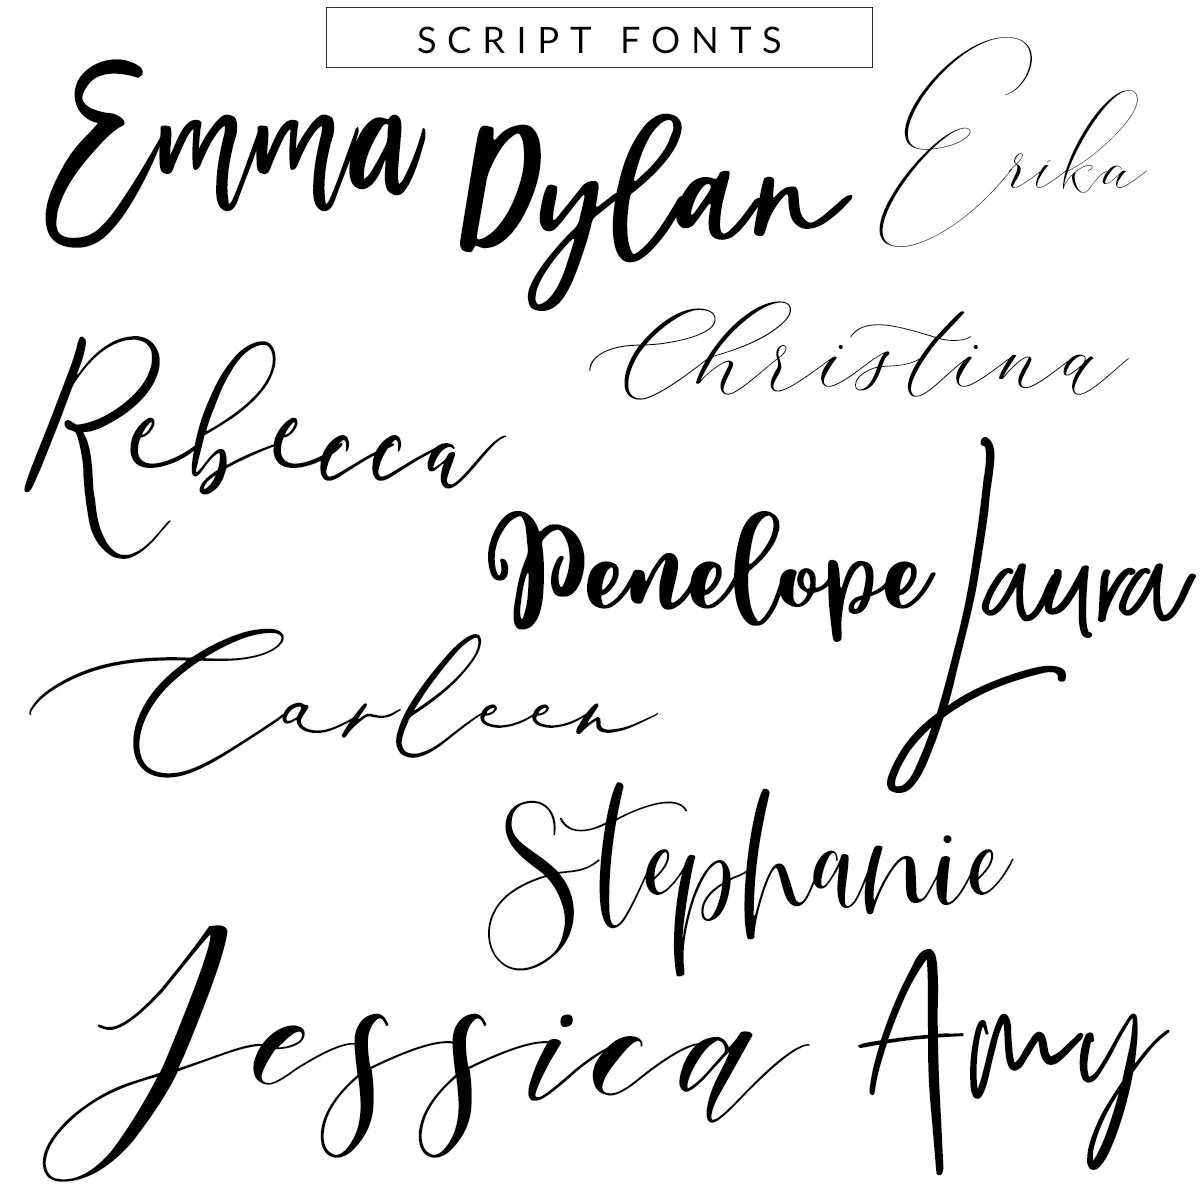 SCRIPT FONTS
Emma
Dylan
Erika
Christina
Rebecca
Penelope
Laura
Carleen
Stephanie
Jessica
Amy